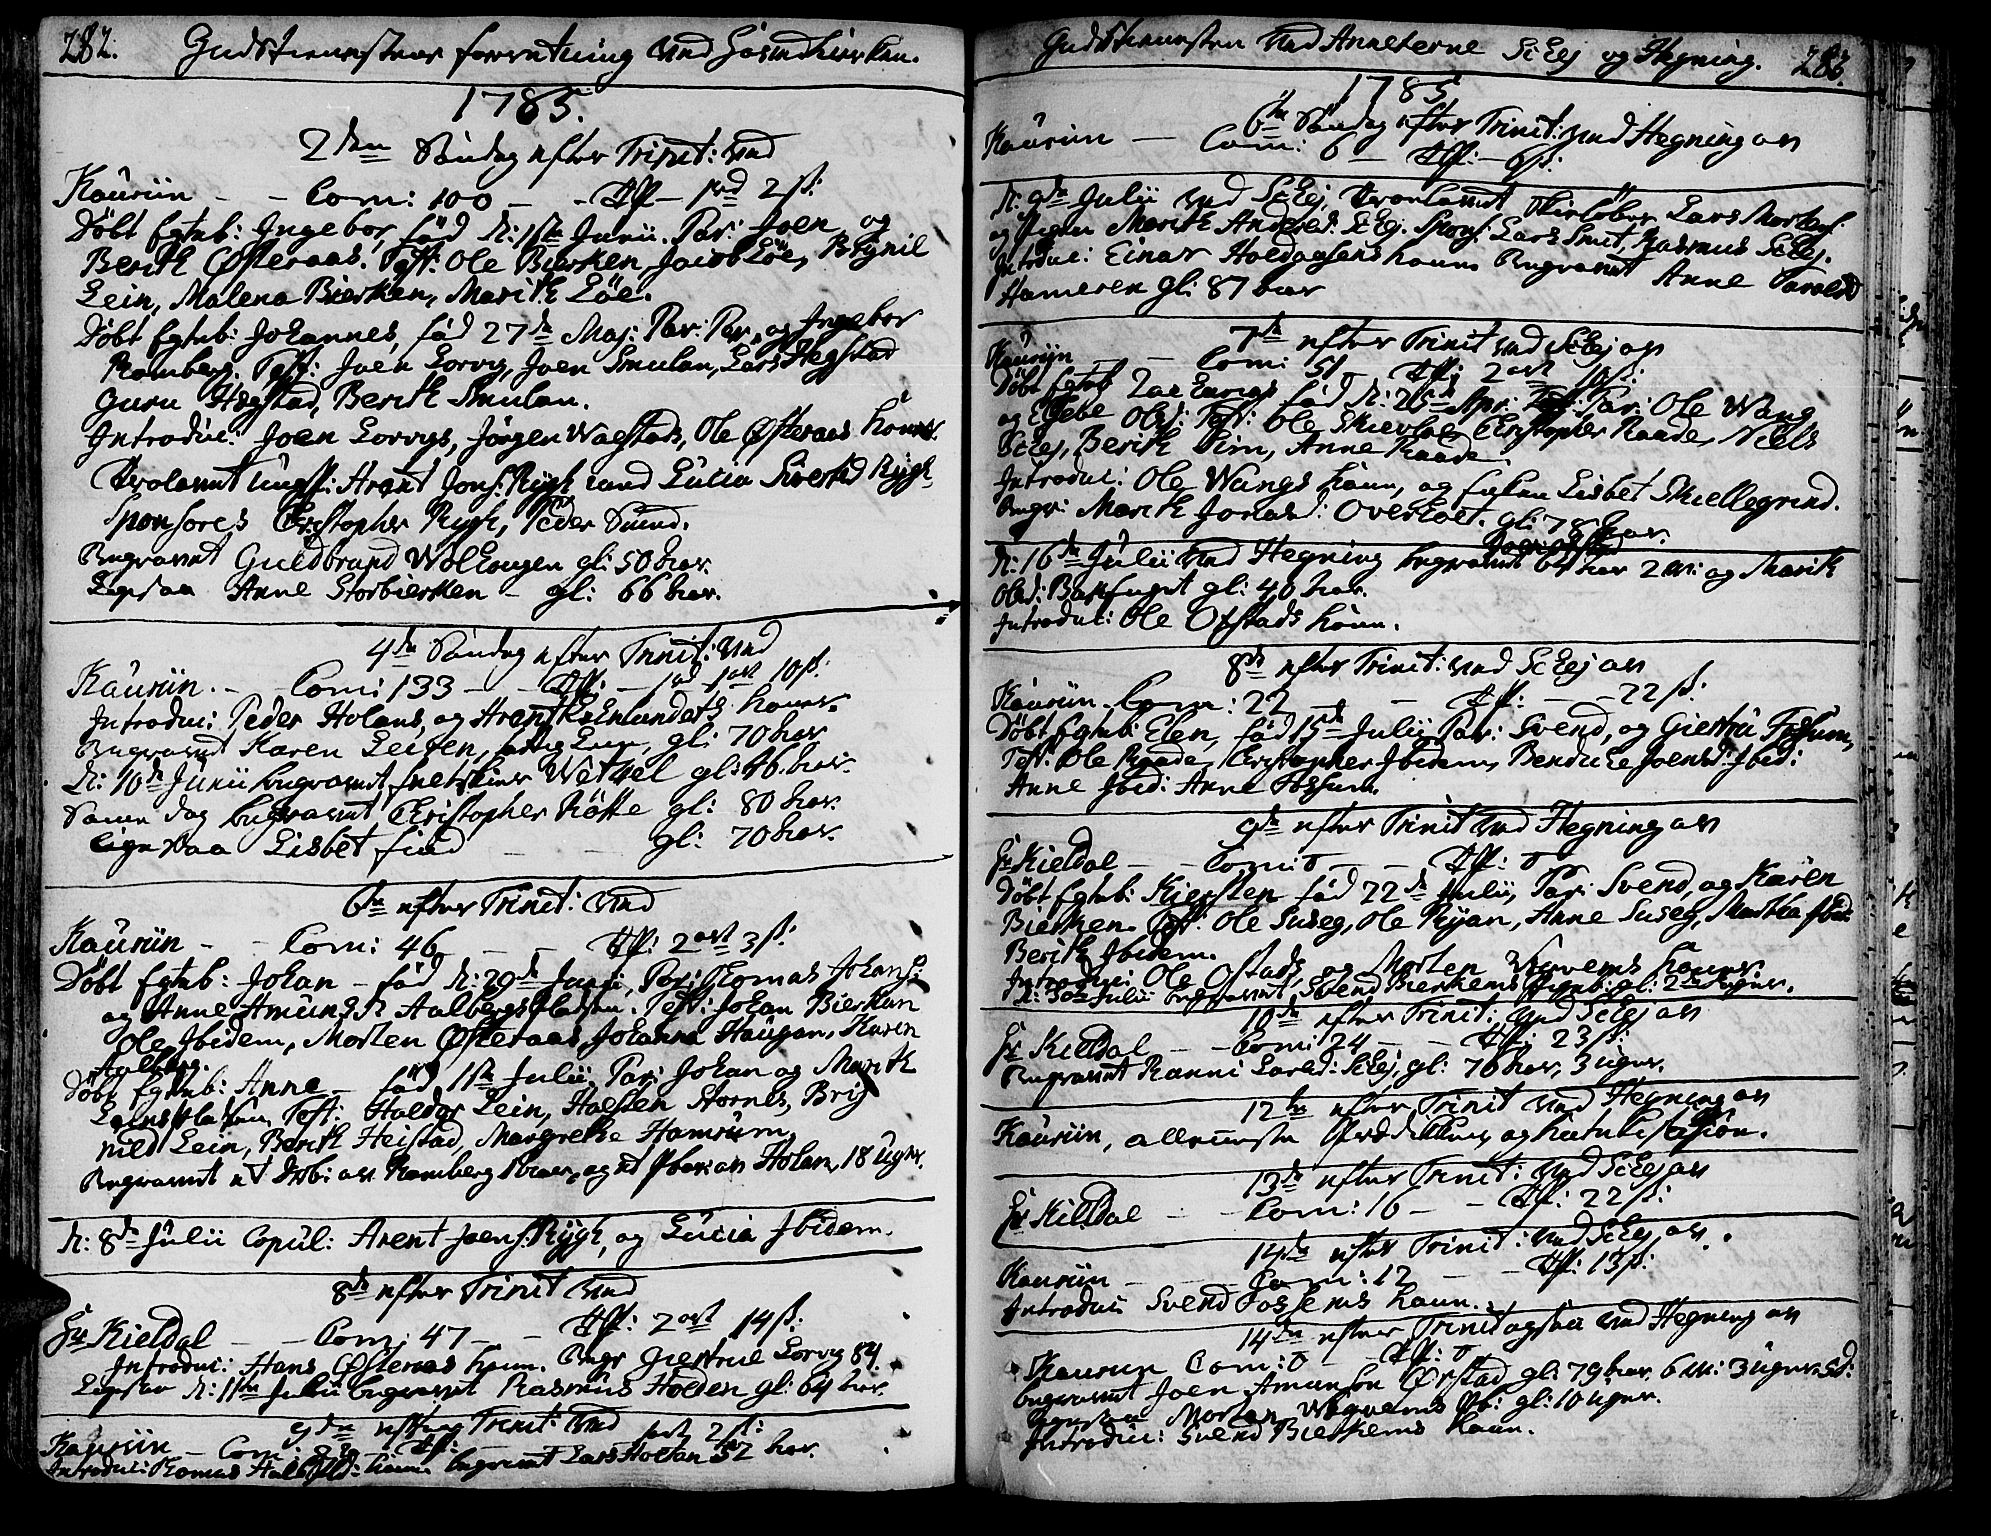 282. Gudstienestens forretning ved Hovedkirken.
1785.
2den Søndag efter Trinit: ved
Kaurin - - Com: 100 - - Off - 1rd 2 ß:
Døbt Egteb: Ingebor, fød d: 11te Junii. Par: Joen og
Berith Østeraas. Test: Ole Bierken, Jacob Löe, Brynil
Lein, Malena Bierken, Marith Löe.
Døbt Egteb: Johannes, fød 27de Maj: Par: Par, og Ingebor
Romberg. Test: Joen Lorvig, Joen Smulan, Lars Hegstad
Guru Hegstad, Berith Smulan.
Introduc: Joen Lorvigs, Jørgen Waestads, Ole Østeraas koner.
Trolovet ungk: Arent Jons: Rygh med Lucia Sivertsd Rygh
Sponsores Christopher Rygh, Peder Suend.
Begravet Guldbrand Wollengen gl: 50 aar.
Ligesaa Anne Storbierken - gl: 66 aar.
4de Søndag efter Trinit: ved
Kaurin. - Com: 133 - - Off: - 1rd 1ort 10 ß:
Introduc: Peder Holans, og Arent koner.
Begravet Karen Leiren, gl: 70 aar
d: 10de Junii begravet Wetzel gl: 46 aar.
Samme dag begravet Christopher Röste gl: 80 aar.
ligesaa Lisbet find - - gl: 70 aar.
6te efter Trinit: ved
Kaurin - - Com: 46 - - Off: 2 ort 3 ß:
Døbt Egteb: Johan - fød d: 29de Junii, Par: Thomas Johans:
og Anne Amunds: Aalbergsplassen. Test: Johan Bierkan
Ole Ibidem, Morten Østeraas, Johanna Haugan, Karen
Aalberg.
Døbt Egteb: Anne - fød 11te Julii, Par: Johan og Marith
Leinsplassen, Test: Haldor Lein, Halsten Stornes, Bry
nild Lein, Berith Heistad, Margrethe Hamrum,
Begravet et Døb: af Romberg 1 aar, og et Pbar: af Holan, 18 Uger.
d: 8de Julii Copul: Arent Joens: Rygh, og Lucia Ibidem.
8de efter Trinit ved
Hr Kieldal - - Com: 47 - - Off: 2 ort 14 ß:
Introduc: Hans Østeraas kone. Begr Giertrue Lorvig 84
Ligesaa d: 11te Julii begravet Rasmus Holden gl: 64 aar.
9de efter Trinit: ved
Kaurin - Com: - Off: - 1ort 2 ß:
Introduc: Thomas kone begravet Lars Holan 52 aar.
Gudstienesten ved Annexerne Schej og Hegning. 283.
1785
6te Søndag efter Trinit: ved Hegning af
Kaurin - Com: 6 - Off: - 6 ß:
d: 9de Julii ved Schej, trolovet Skieløber Lars Mortens:
og Pigen Marith Andersd: Schej. Spons: Lars Smit, Rasmus Schej.
Introduc: Einar Holdaasens kone Begravet Anne Tarald
Hameren gl: 87 aar
7de efter Trinit ved Schej af
Kaurin - - Com: 51 - Off: 2 ort 10 ß:
Døbt Egteb fød d: 26de Apr: Par: Ole Wang
og Elsebe Olsd: Test: Ole Skievloe, Christopher Raade, Niels
Schej, Berith Sim, Anne Raade.
Introduc: Ole Wangs kone, og Lisbet Skiellegrind.
Begr: Marith Jonasd: Overhoet. gl: 78 aar.
d: 16de Julii ved Hegning begravet 64 aar 2 m: og Marith
Olsd: Bakfuget gl: 40 aar.
Introduc: Ole Ofstads kone.
8de efter Trinit: ved Schej af
Kaurin. Com: 22 - - Off: - - 22 ß:
Døbt Egteb: Elen, fød 15de Julii Par: Svend, og Giertru Fossum,
Test: Ole Raade, Christopher Ibidem, Benducke Joensd: Ibid:
Anne Ibid: Anne Fossum.
9de efter Trinit ved Hegning af
Hr Kieldal - - Com: 0 - - Off: 0
Døbt Egteb: Kiersten fød 22de Julii, Par: Svend, og Karen
Bierken Test: Ole Suseg, Ole Ryan, Anne Suseg, Martha Ibid:
Berith Ibidem.
Introduc: Ole Ofstads, og Morten Wervems koner.
d: 30te Julii begravet Svend Bierkems Egteb: gl: 2de Uger.
10de efter Trinit: ved Schej af
Hr Kieldal - - Com: 24 - - Off: 23 ß:
Begravet Ranni Larsd: Schej, gl: 76 aar, 3 uger.
12te efter Trinit ved Hegning af
Kaurin, alleneste Præddiken og Catechisation.
13de efter Trinit: ved Schej af
Hr Kieldal - - Com: 16 - - Off: 22 ß:
14de efter Trinit: ved Schej af
Kaurin - - Com: 12 - - Off: 13 ß:
Introduc: Svend Fossems kone.
14de efter Trinit ogsaa ved Hegning af
Kaurin Com: 0 - - Off: 0
begravet Joen Amunsen Ørstad gl: 79 aar 6 m: 3 uger
Ligesaa Morten Wervems Pb: gl: 10 uger.
Introduc: Svend Bierkems kone.